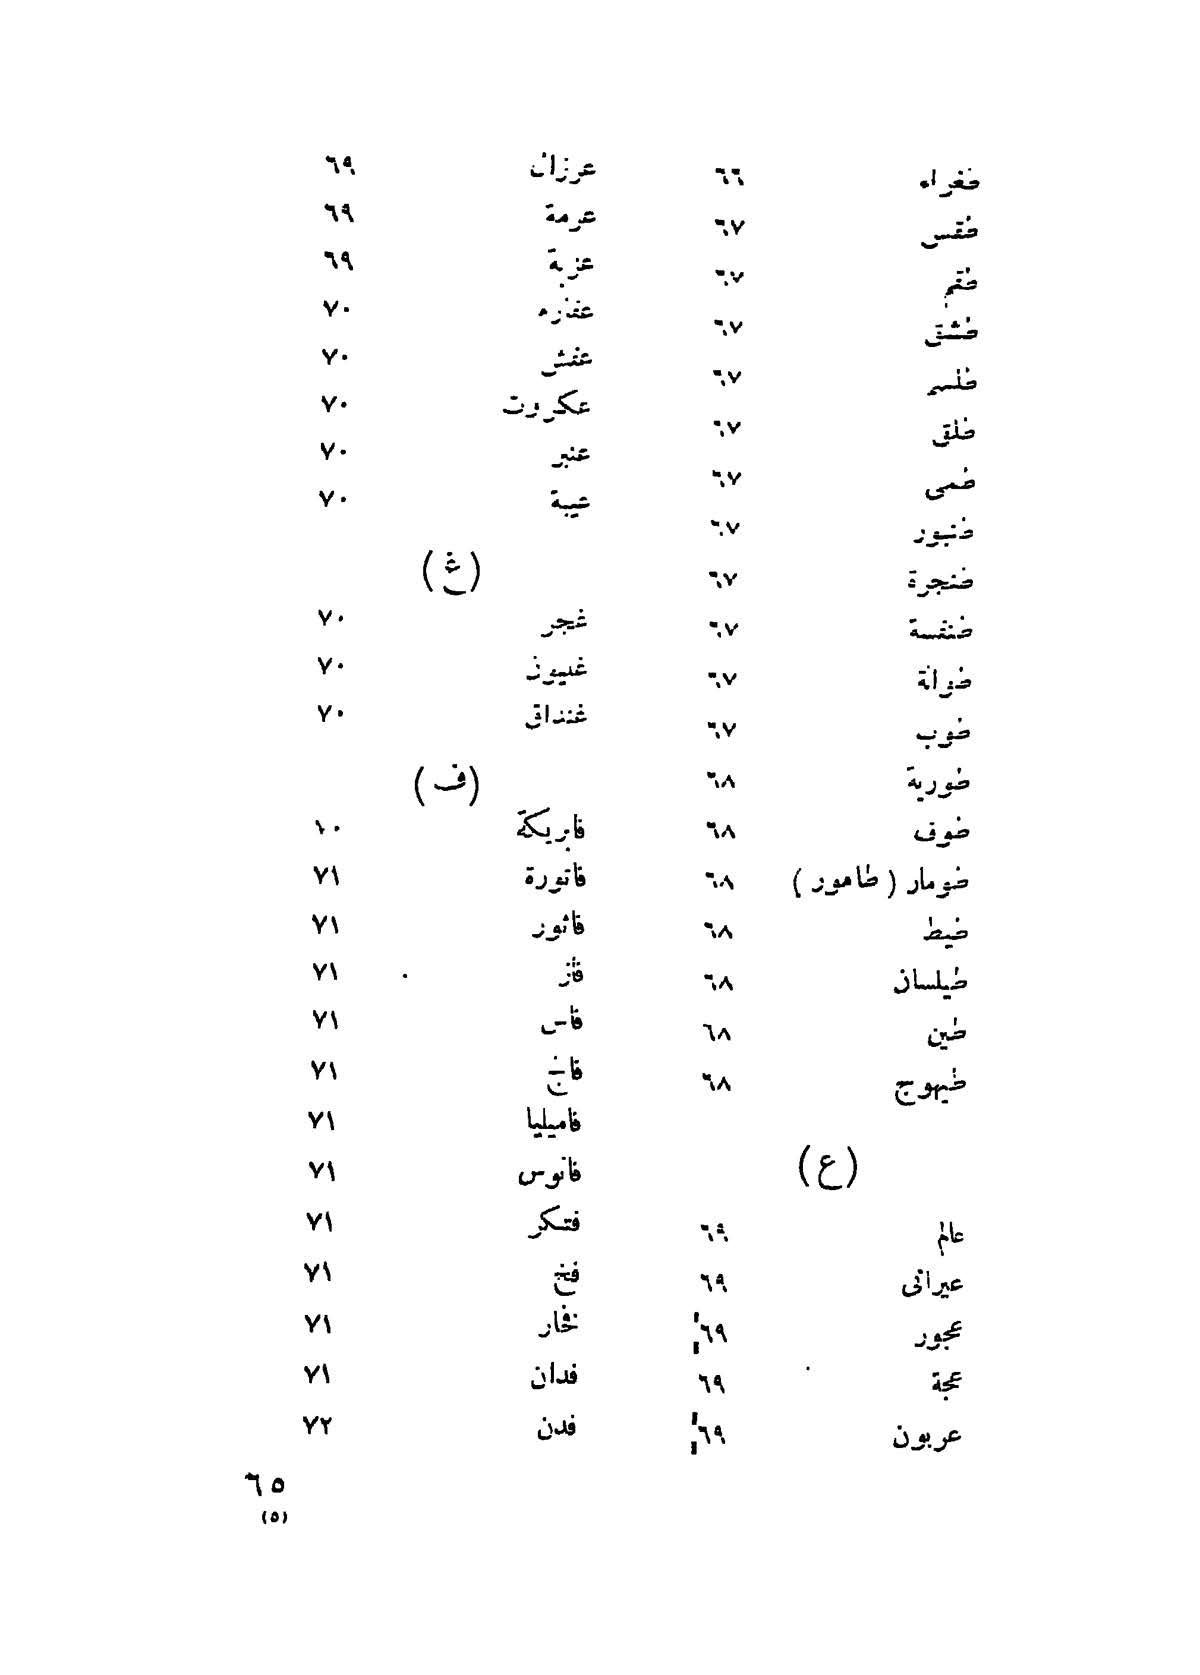 طغراء ٦٦
طقس ٦٧
طقم ٦٧
طشق ٦٧
طلسم ٦٧
طلق ٦٧
طمى ٦٧
طنبور ٦٧
طنجرة ٦٧
طنفسة ٦٧
طوانة ٦٧
طوب ٦٧
طورية ٦٨
طوف ٦٨
طومار ( طامور ) ٦٨
طيط ٦٨
طيلسان ٦٨
طين ٦٨
طيهوج ٦٨
(ع)
عالم ٦٩
عيراتى ٦٩
عجور ٦٩
عجة ٦٩
عربون ٦٩
عرزال ٦٩
عرمة ٦٩
عزبة ٦٩
عفاره ٧٠
عفش ٧٠
عكروت ٧٠
عنبر ٧٠
عيبة ٧٠
(غ)
غجر ٧٠
غليون ٧٠
غنداق ٧٠
(ف)
فابريكة ١٠
فاتورة ٧١
فاثور ٧١
فاز ٧١
فاس ٧١
فالج ٧١
فاميليا ٧١
فانوس ٧١
فتكر ٧١
فخ ٧١
فخار ٧١
فدان ٧١
فدن ٧٢
٦٥
(٥)